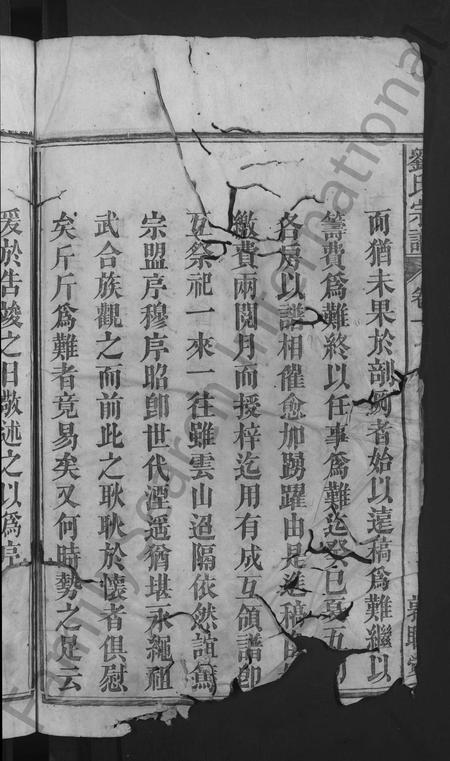 劉氏宗譜 卷一
而猶未果於剞劂者始以達稿為難繼以
籌費為難終以任事為難迄癸巳夏五
各房以譜相催愈加踴躍由是送稿
繳費兩閱月而授梓迄用有成互領譜卽
互祭祀一來一往雖雲山迢隔依然誼篤
宗盟序穆序昭卽世代湮遥猶堪永繩祖
武合族觀之而前此之耿耿於懷者俱慰
矣斤斤爲難者竟易矣又何時勢之足云
爰於告竣之日敬述之以爲序
FamilySearch International